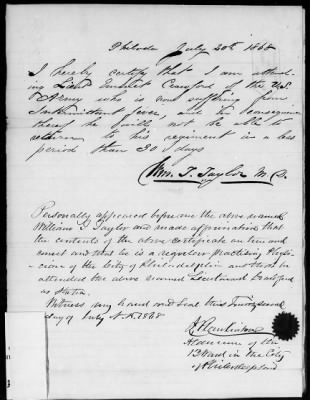 Philada July 20th 1868
I hereby certify that I am attend-
ing Lieut Crawford of the U.S.
Army who is now suffering from
Intermittent fever, and in consequence
thereof he will not be able to
return to his regiment in a less
period than 30 days
Wm. T. Taylor M.D.
Personally appeared before me the above named
William T Taylor and made affirmation that
the contents of the above certificate are true and
correct and that he is a regular practising Physi-
cian of the City of Philadelphia and that he
attended the above named Lieutenant Crawford
as stated.
Witness my hand and Seal this Twenty second
day of July A.D. 1868
Alderman of the
Ward in the City
of Philadelphia